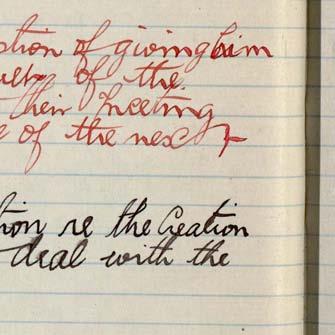 ption of giving him
of the
their meeting
of the next
tion re the Creation
deal with the